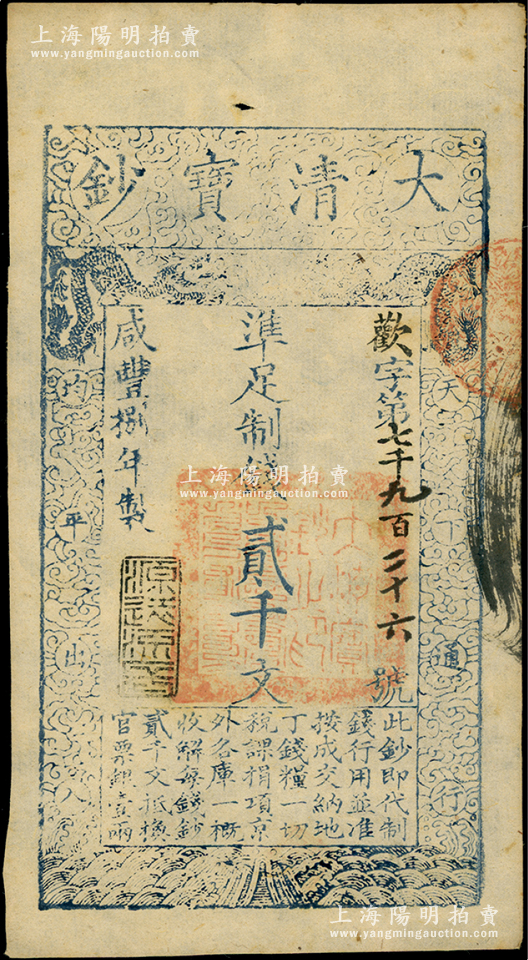 上海陽明拍賣
www.yangmingauction.com
大清寶鈔
天下通行
歡字第七千九百二十六號
準足制錢貳千文
咸豐捌年製
均平出入
此鈔即代制
錢行用並准
按成交納地
丁錢糧一切
稅課捐項京
外各庫一概
收解每錢鈔
貳千文抵換
官票銀壹兩
上海陽明拍賣
www.yangmingauction.com
上海陽明拍賣
www.yangmingauction.com